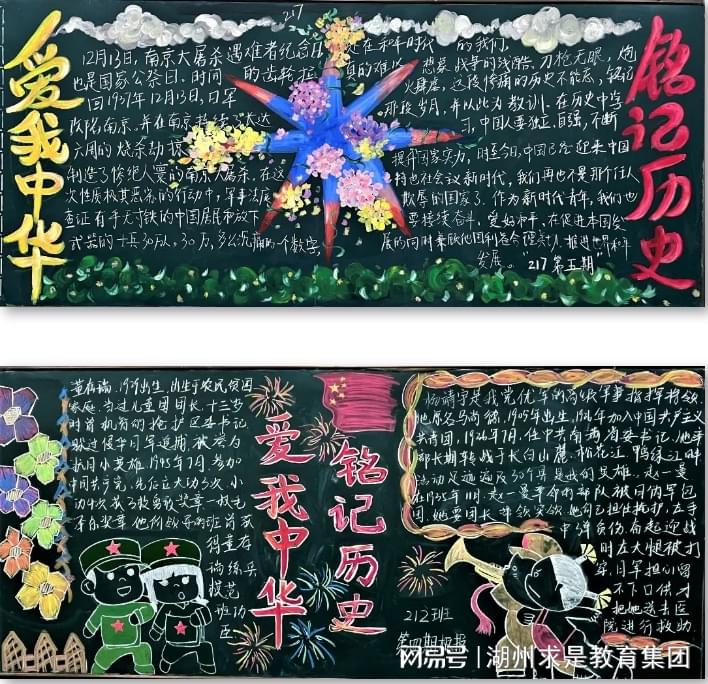 217
爱我中华
12月13日，南京大屠杀遇难者纪念日
也是国家公祭日，时间的齿轮拉
回1937年12月13日，日军
攻陷南京，并在南京持续了长达
六周的烧杀劫
制造了惨绝人寰的南京大屠杀，在这
次性质极其恶劣的行动中，军事法庭
查证有手无寸铁的中国居民和放下
武器的士兵30万人，30万，多么沉痛的一个数字
处在和平时代的我们，
真的难以想象战争的残酷，刀枪无眼，炮
火肆虐，这段惨痛的历史不能忘，铭记
那段岁月，并以此为教训，在历史中学
习，中国人要独立，自强，不断
提升国家实力，时至今日，中国已经迎来中国
特色社会主义新时代，我们再也不是那个任人
欺辱的国家了，作为新时代青年，我们也
要接续奋斗，爱好和平，在促进本国发
展的同时兼顾他国利益合理关切，推进世界和平
发展。"
217 第五期
铭记历史
董存瑞，1929出生，出生于农民贫困
家庭，当过儿童团团长，十三岁
时曾机智的掩护区委书记
躲过侵华日军追捕，被誉为
抗日小英雄，1945年7月，参加
中国共产党，先后立大功3次，小
功4次，获3枚勇敢奖章、一枚毛
泽东奖章，他所领导的班曾获
得董存
瑞练兵
模范
班功
臣
爱我中华
铭记历史
杨靖宇是我党优秀的高级军事指挥将领
他原名马尚德，1905年出生，1926年加入中国共产主义
青年团，1926年7月，任中共南满省委书记，他率
部长期转战于长白山麓，松花江，鸭绿江畔
活动足迹遍及30个县是民族英雄，赵一曼
在1935年11月，赵一曼率领的部队被日伪军包
围，她要团长带领突破，她自己担任掩护，左手
中弹负伤，奋起迎战
时左大腿被打
穿，日军担心留
不下口供才
把她送去医
院进行救助
212班
第四期板报
网易号 | 湖州求是教育集团